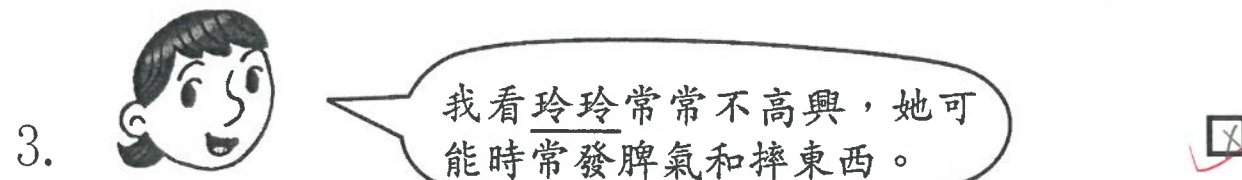 3.
我看玲玲常常不高興，她可
能時常發脾氣和摔東西。
X